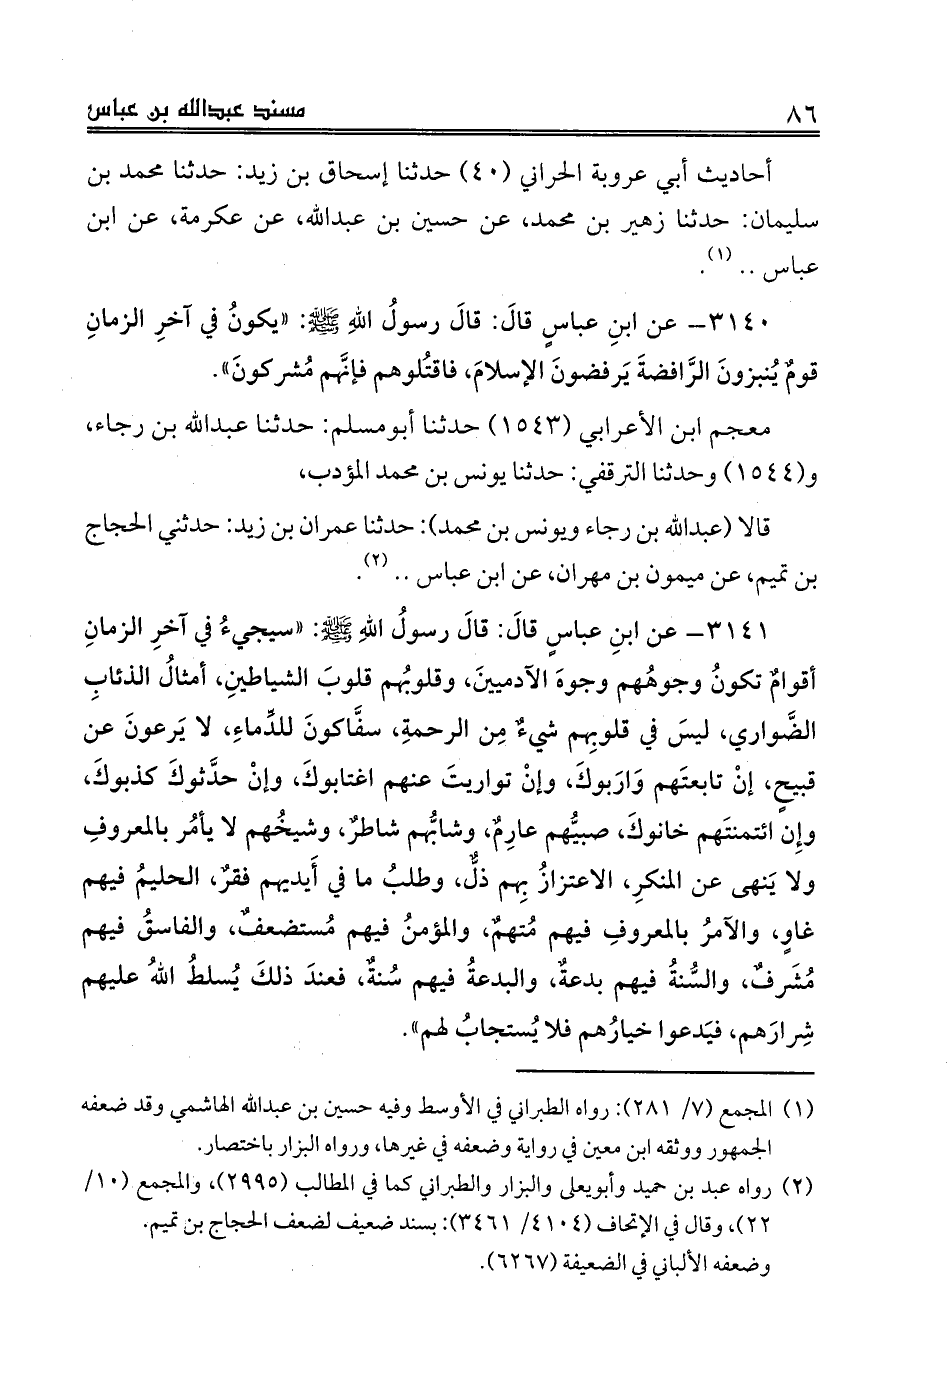 ٨٦ مسند عبدالله بن عباس
أحاديث أبي عروبة الحراني (٤٠) حدثنا إسحاق بن زيد: حدثنا محمد بن
سليمان: حدثنا زهير بن محمد، عن حسين بن عبدالله، عن عكرمة، عن ابن
عباس .. (١).
٣١٤٠- عن ابنِ عباسٍ قالَ: قالَ رسولُ اللهِ ﷺ: «يكونُ في آخرِ الزمانِ
قومٌ يُنبزونَ الرَّافضةَ يَرفضونَ الإسلامَ، فاقتُلوهم فإنَّهم مُشركونَ».
معجم ابن الأعرابي (١٥٤٣) حدثنا أبومسلم: حدثنا عبدالله بن رجاء،
و(١٥٤٤) وحدثنا الترقفي: حدثنا يونس بن محمد المؤدب،
قالا (عبدالله بن رجاء ويونس بن محمد): حدثنا عمران بن زيد: حدثني الحجاج
بن تميم، عن ميمون بن مهران، عن ابن عباس .. (٢).
٣١٤١- عن ابنِ عباسٍ قالَ: قالَ رسولُ اللهِ ﷺ: «سيجيءُ في آخرِ الزمانِ
أقوامٌ تكونُ وجوهُهم وجوهَ الآدميينَ، وقلوبُهم قلوبَ الشياطينِ، أمثالُ الذئابِ
الضَّواري، ليسَ في قلوبِهم شيءٌ مِن الرحمةِ، سفَّاكونَ للدِّماءِ، لا يَرعونَ عن
قبيحٍ، إنْ تابعتَهم وَارَبوكَ، وإنْ تواريتَ عنهم اغتابوكَ، وإنْ حدَّثوكَ كذبوكَ،
وإن ائتمنتَهم خانوكَ، صبيُّهم عارِمٌ، وشابُّهم شاطرٌ، وشيخُهم لا يأمُر بالمعروفِ
ولا يَنهى عن المنكرِ، الاعتزازُ بِهم ذلٌّ، وطلبُ ما في أَيديهم فقرٌ، الحليمُ فيهم
غاوٍ، والآمرُ بالمعروفِ فيهم مُتهمٌ، والمؤمنُ فيهم مُستضعفٌ، والفاسقُ فيهم
مُشَرفٌ، والسُّنةُ فيهم بدعةٌ، والبدعةُ فيهم سُنةٌ، فعندَ ذلكَ يُسلطُ اللهُ عليهم
شِرارَهم، فيَدعوا خيارُهم فلا يُستجابُ لهم».
(١) المجمع (٧/ ٢٨١): رواه الطبراني في الأوسط وفيه حسين بن عبدالله الهاشمي وقد ضعفه
الجمهور ووثقه ابن معين في رواية وضعفه في غيرها، ورواه البزار باختصار.
(٢) رواه عبد بن حميد وأبويعلى والبزار والطبراني كما في المطالب (٢٩٩٥)، والمجمع (١٠/
٢٢)، وقال في الإتحاف (٤١٠٤/ ٣٤٦١): بسند ضعيف لضعف الحجاج بن تميم.
وضعفه الألباني في الضعيفة (٦٢٦٧).